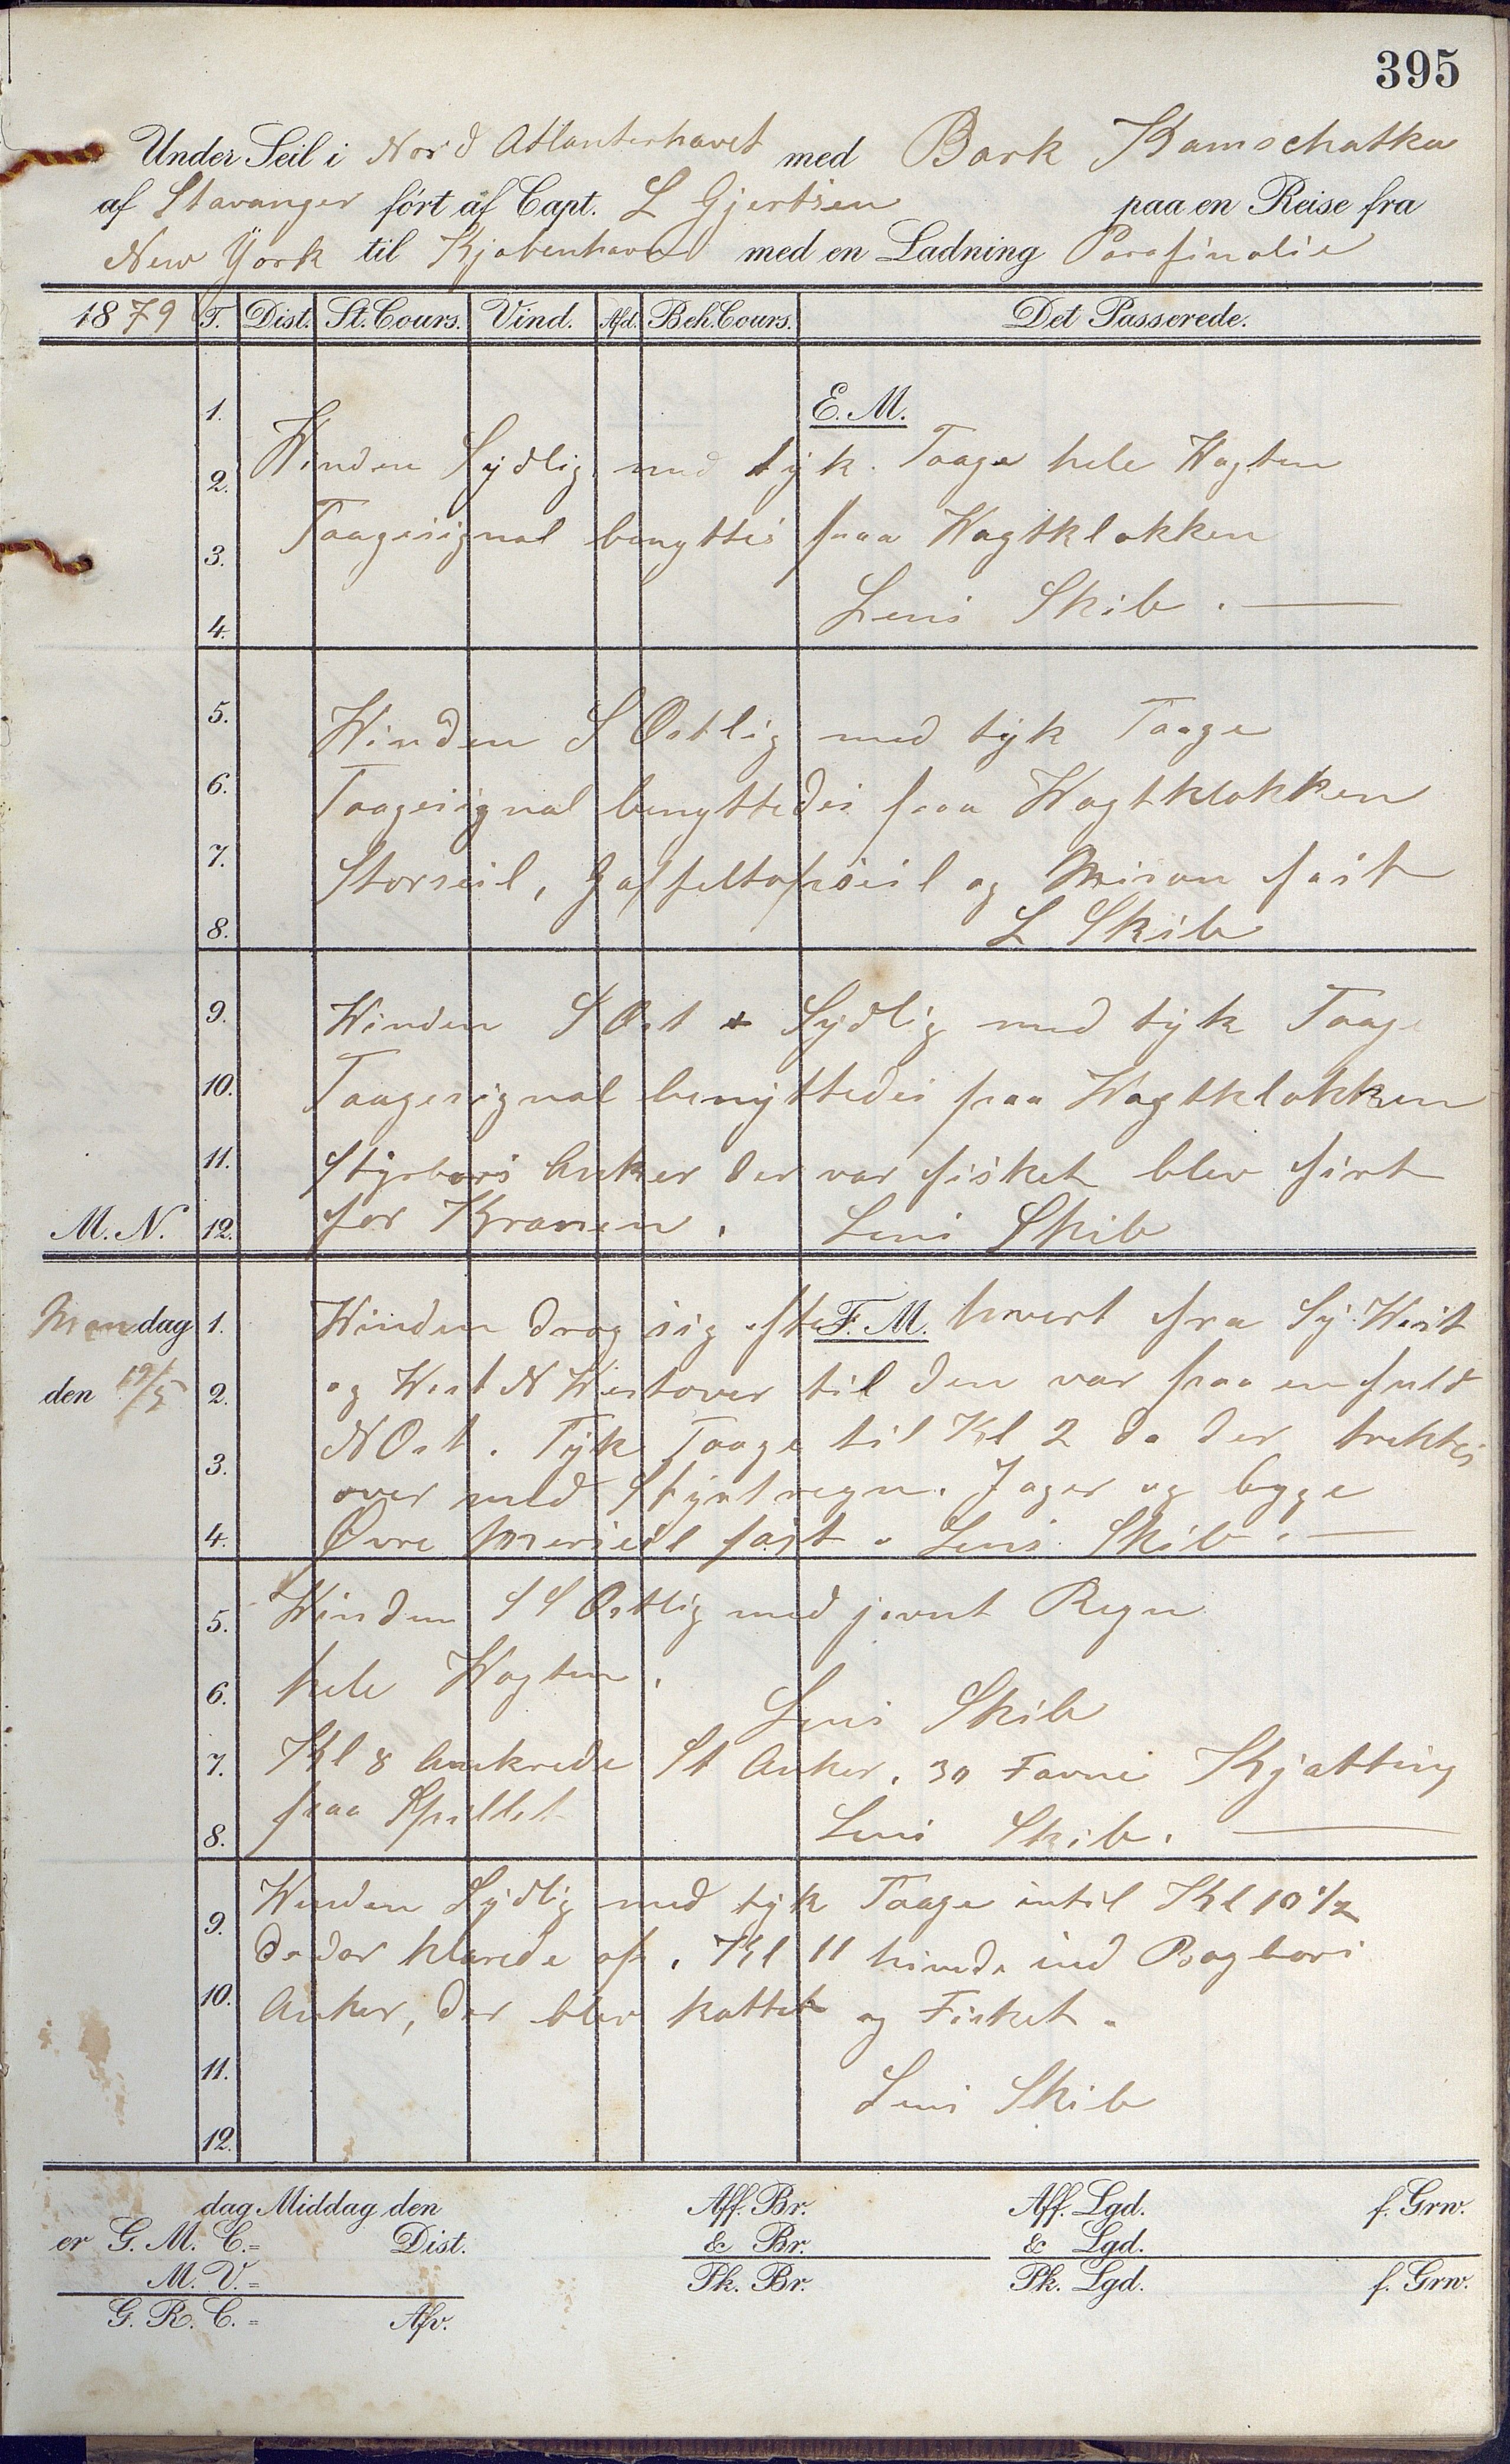 395
Under Seil i Nord Atlanterhavet med Bark Kamschatka
af Stavanger ført af Capt. L Gjertsen paa en Reise fra
New York til Kjøbenhavn med en Ladning Parafinolie
1879 T. Dist. St. Cours. Vind. Afd. Beh. Cours. Det Passerede.
1. E. M.
2. Winden Sydlig med tyk Taage hele Wagten
3. Taagesignal benyttes paa Wagtklokken
4. Lens Skib.
5. Winden S Ostlig med tyk Taage
6. Taagesignal benyttedes paa Wagtklokken
7. Storseil, Gaffeltopseil og Mesan fast
8. L Skib
9. Winden S Ost & Sydlig med tyk Taage
10. Taagesignal benyttedes paa Wagtklokken
11. Styrbors Anker der var fisket blev firt
M. N. 12. for Kranen. Lens Skib
Mandag 1. Winden drog sig efter F. M. hvert fra Sy West
den 19/5 2. og West N Westover til den var paa en fuld
3. N Ost. Tyk Taage til Kl 2 da der trektes
over med Styrtregn. Jager og begge
4. Øvre Merseil fast. Lens Skib.
5. Winden SS Ostlig med jevnt Regn
6. hele Wagten.
Lens Skib
7. Kl 8 Ankrede St Anker. 30 Favne Kjætting
8. paa Spillet Lens Skib.
Winden Sydlig med tyk Taage intil Kl 10 1/2
9. da der klarede op. Kl 11 hivede ind Bagbors
10. Anker, der blev kattet og Fisket.
11. Lens Skib
12.
dag Middag den Aff. Br. Aff. Lgd. f. Grw.
er G. M. C.= Dist. & Br. & Lgd.
M. V.= Pk. Br. Pk. Lgd. f. Grw.
G. R. C.= Afv.